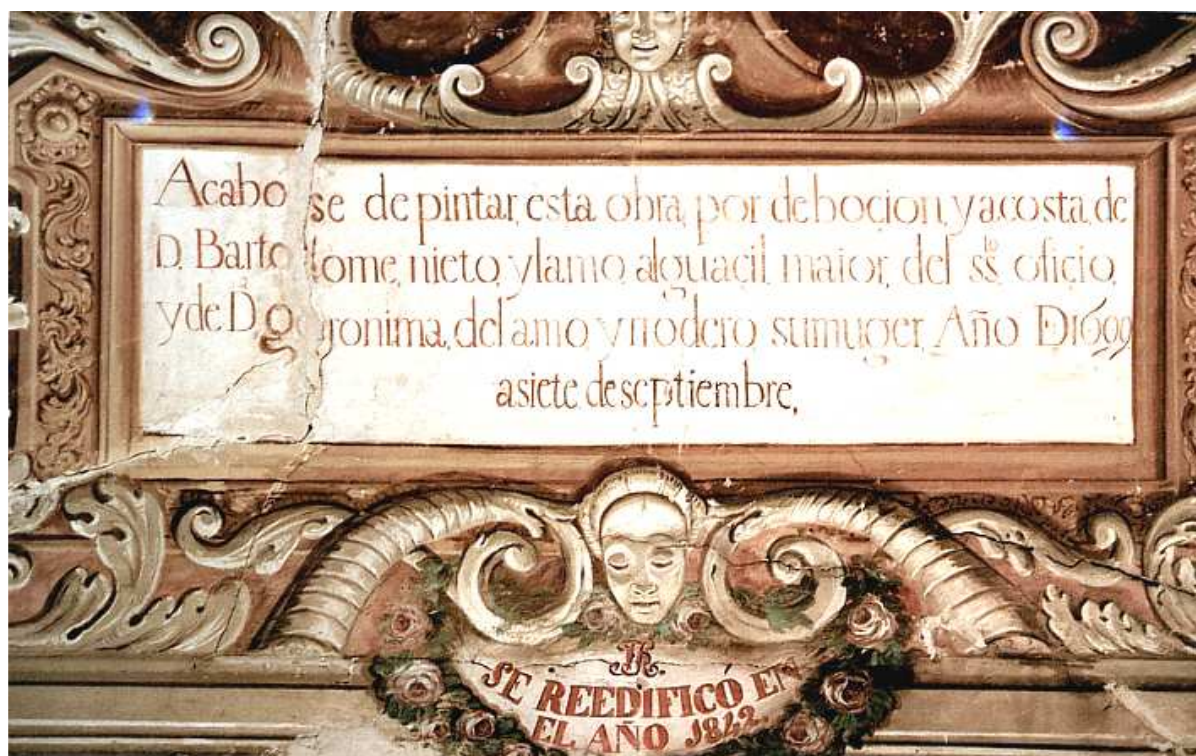 Acabose de pintar, esta obra, por debocion, y acosta, de
D. Bartolome, nieto, ylamo, alguacil maior, del s.to oficio,
y de D.a geronima, del amo, y rrodero sumuger, Año D 1699
asiete de septiembre,
SE REEDIFICÓ EN
EL AÑO 1842